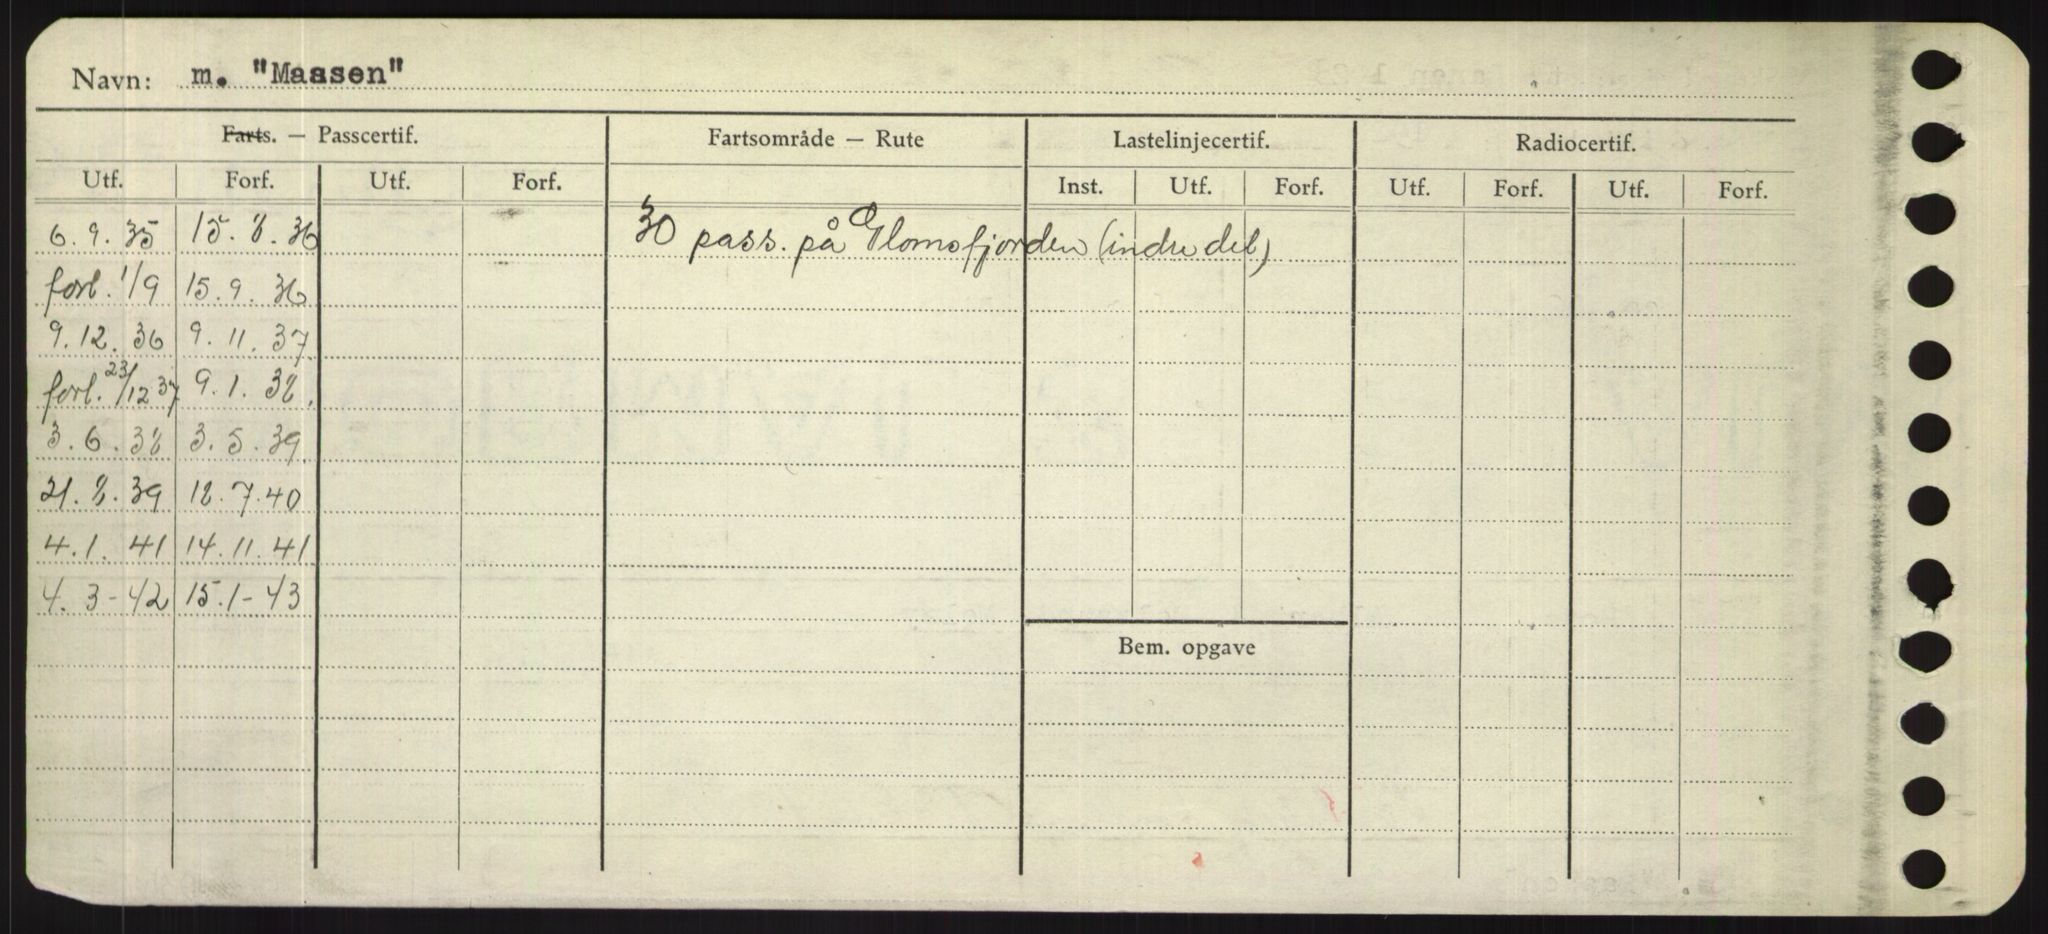 Navn: m. "Maasen"
Farts. — Passcertif. Fartsområde — Rute Lastelinjecertif. Radiocertif.
Utf. Forf. Utf. Forf. Inst. Utf. Forf. Utf. Forf. Utf. Forf.
6.9.35 15.8.36 30 pass. på Glomsfjorden (indre del)
forl. 1/9 15.9.36
9.12.36 9.11.37
forl. 23/12 37 9.1.38.
3.6.38 3.5.39
21.8.39 18.7.40
4.1.41 14.11.41
4.3-42 15.1-43
Bem. opgave